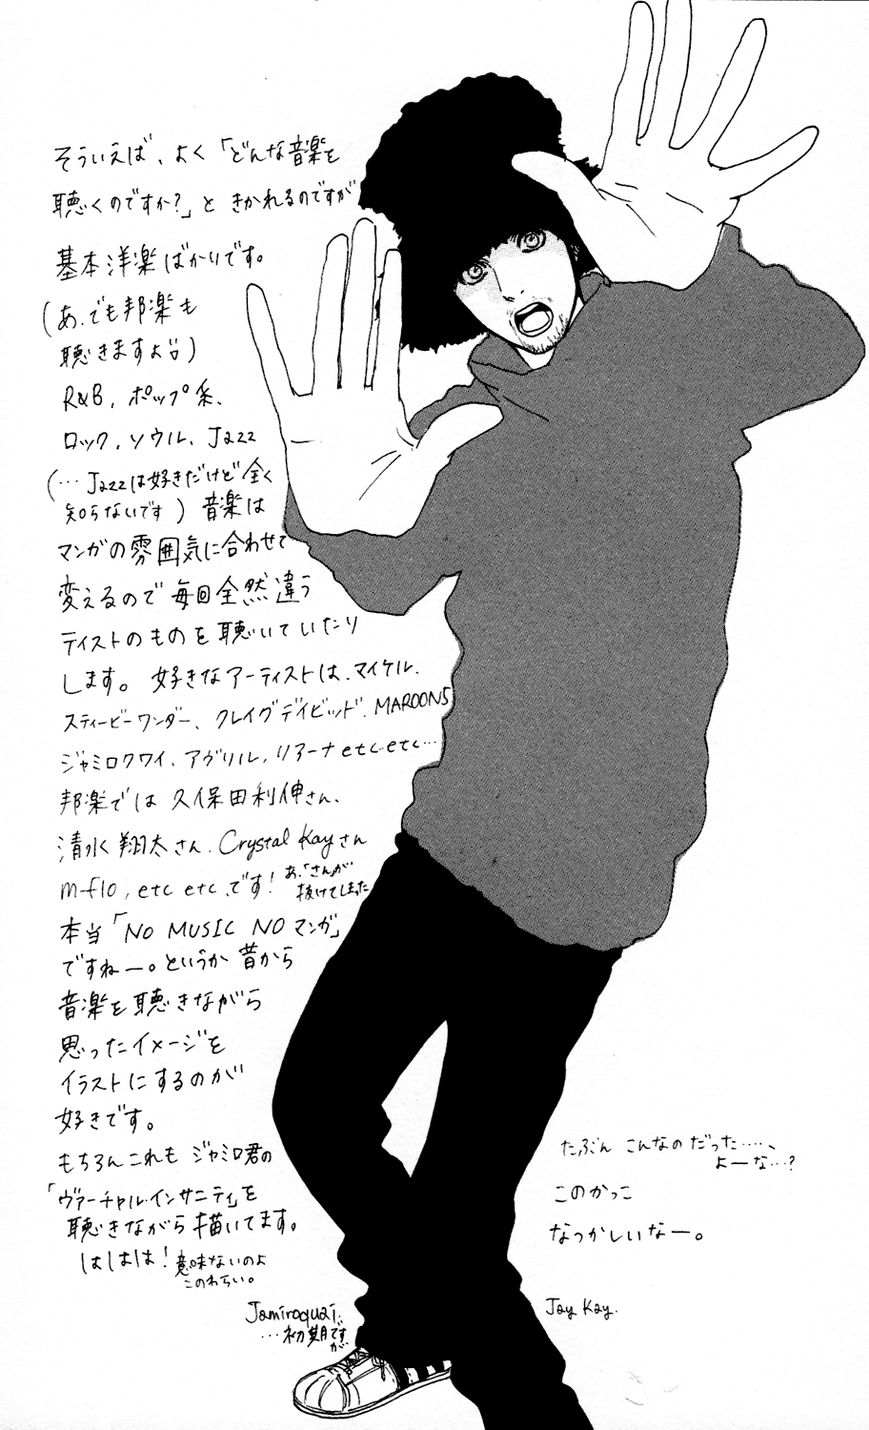 そういえば、よく「どんな音楽を
聴くのですか?」と きかれるのですが
基本洋楽ばかりです。
(あ、でも邦楽も
聴きますよ)
R&B、ポップ系、
ロック、ソウル、Jazz
(…Jazzは好きだけど全く
知らないです) 音楽は
マンガの雰囲気に合わせて
変えるので毎回全然違う
テイストのものを聴いていたり
します。好きなアーティストは、マイケル、
スティービーワンダー、クレイグデイビッド、MAROON5
ジャミロクワイ、アヴリル、リアーナetc etc…
邦楽では久保田利伸さん、
清水翔太さん、Crystal Kayさん
m-flo, etc etc、です! あ、「さん」が
抜けてしまった
本当「NO MUSIC NO マンガ」
ですねー。というか昔から
音楽を聴きながら
思ったイメージを
イラストにするのが
好きです。
もちろんこれも ジャミロ君の
「ヴァーチャル・インサニティ」を
聴きながら描いてます。
ははは! 意味ないのよ
このわらい。
Jamiroquai.
…初期ですが
たぶん こんなのだった……、
よーな…?
このかっこ
なつかしいなー。
Jay Kay.